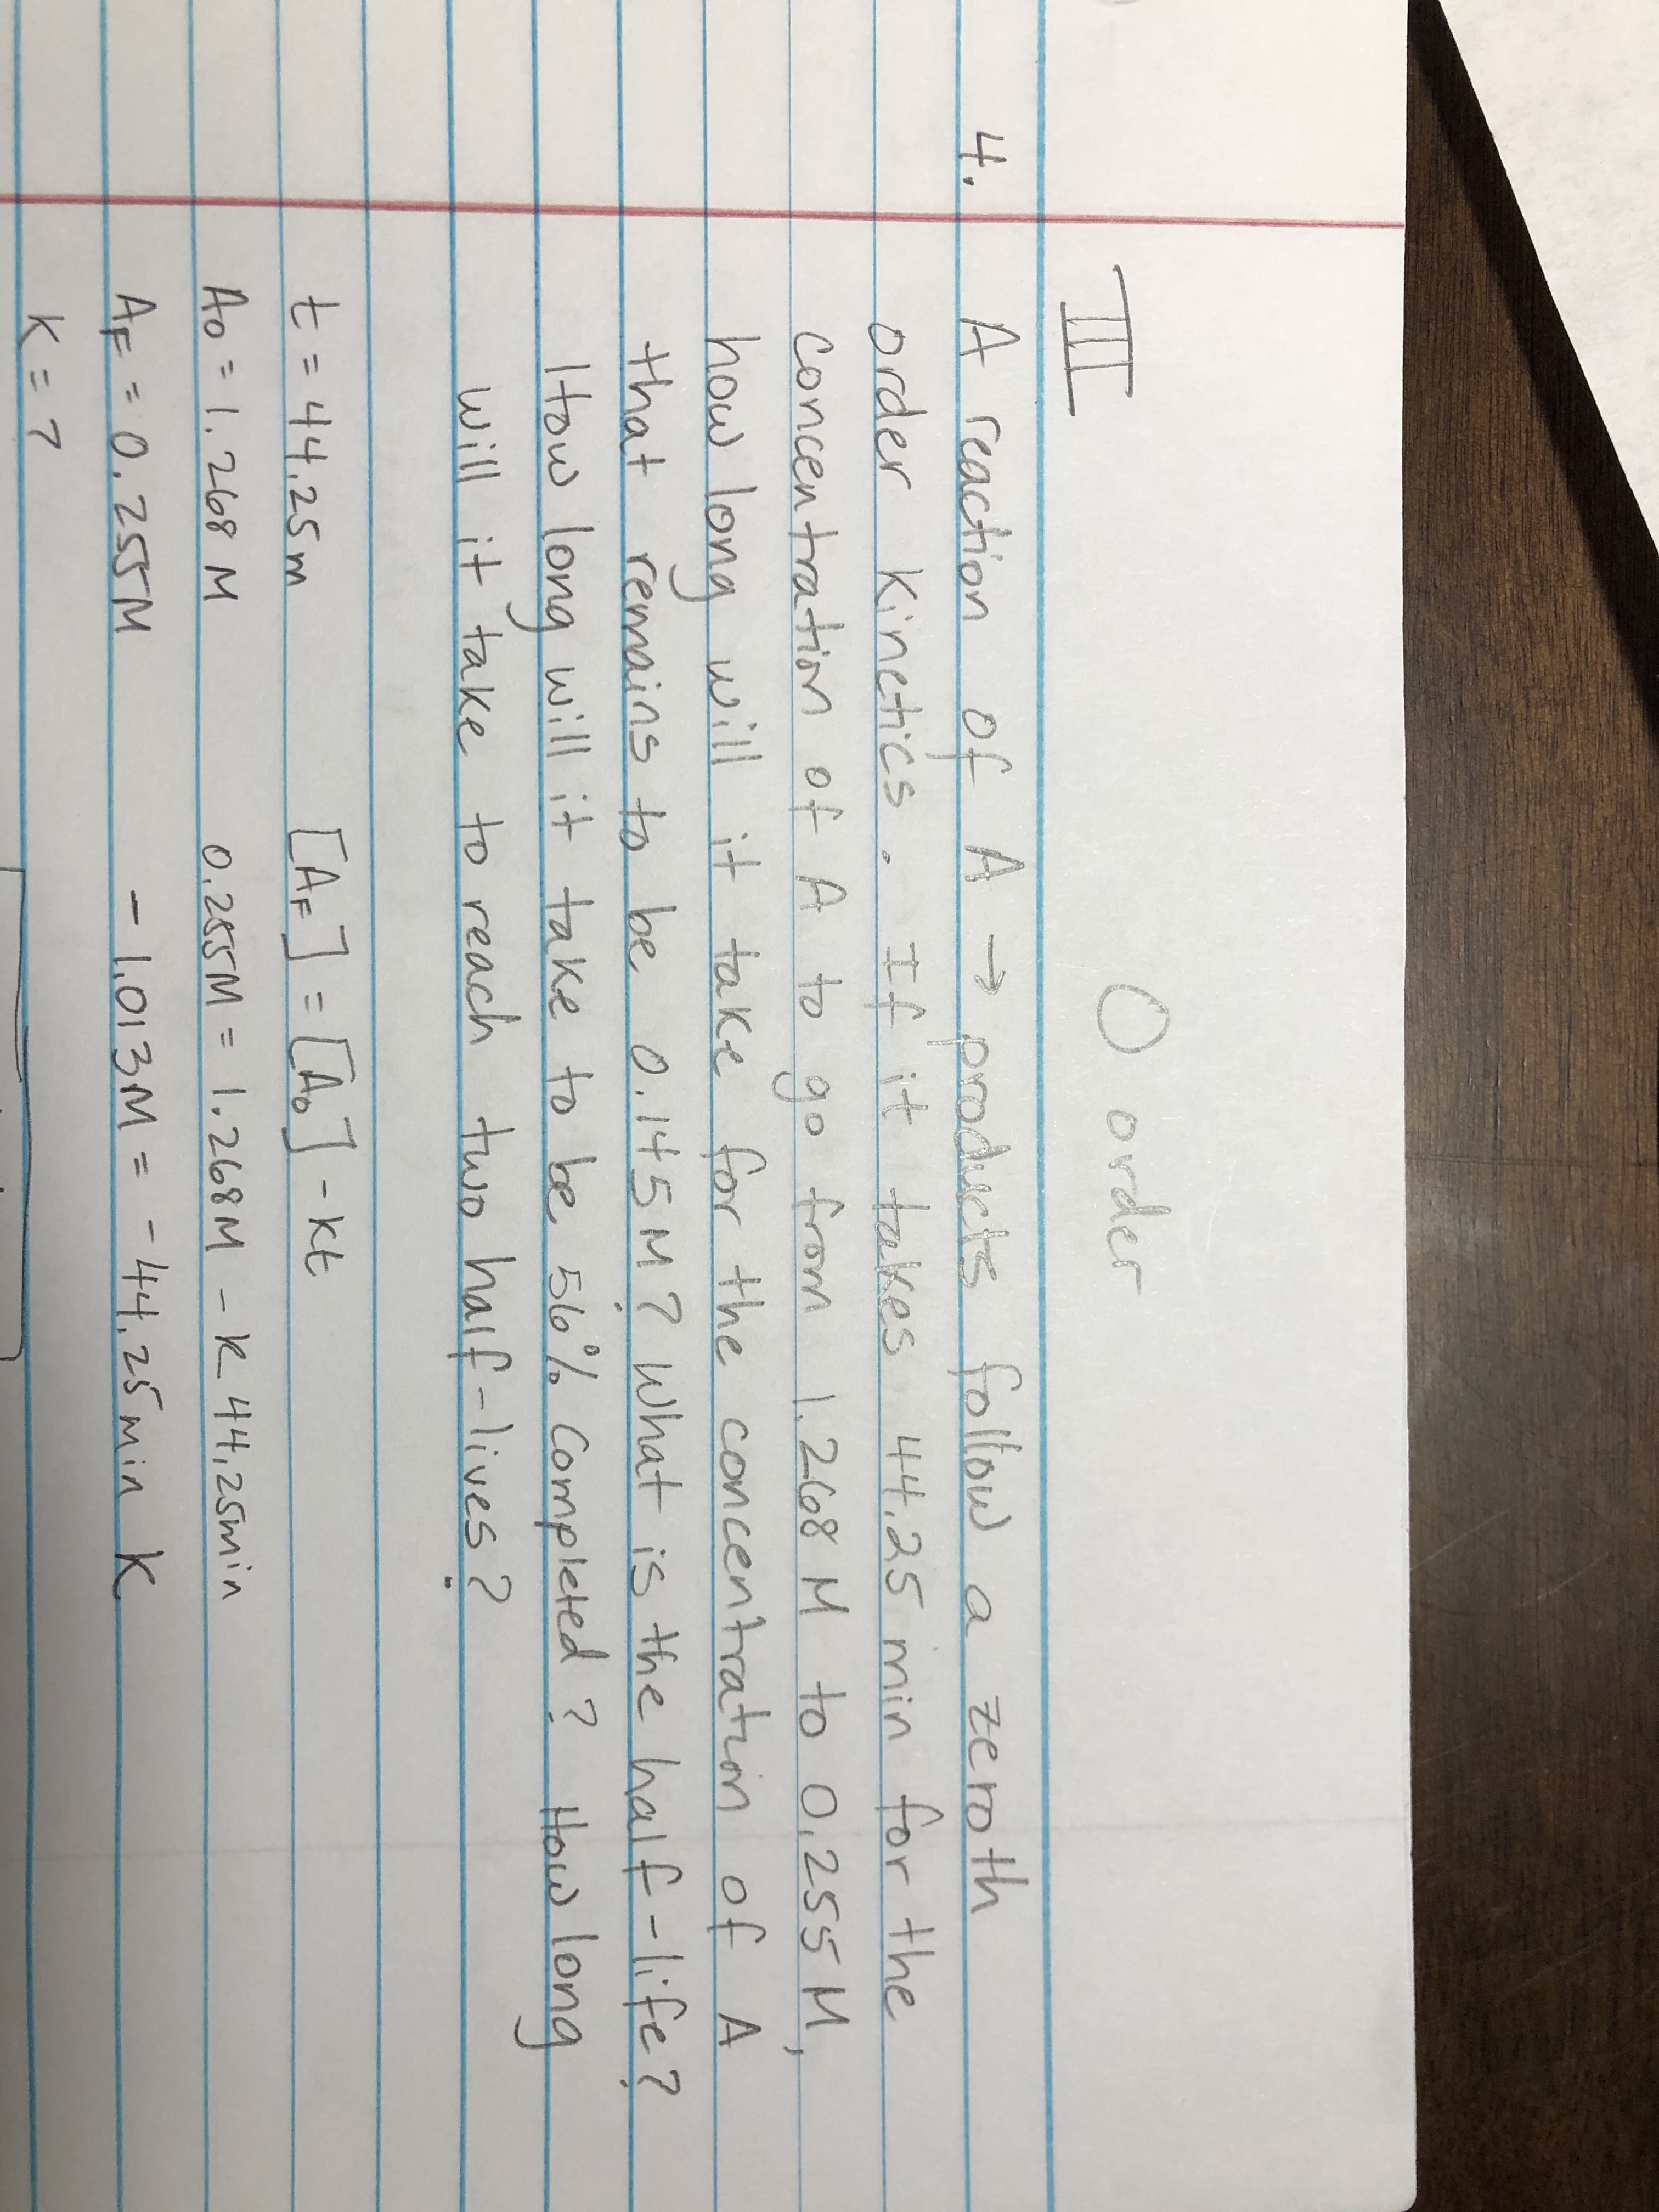 O order
III
4. A reaction of A → products follow a zeroth
order kinetics. If it takes 44.25 min for the
concentration of A to go from 1.268 M to 0.255 M,
how long will it take for the concentration of A
that remains to be 0.145 M? What is the half-life?
How long will it take to be 56% completed? How long
will it take to reach two half-lives?
t = 44.25m [AF] = [A0] - kt
A0 = 1.268 M 0.255M = 1.268M - k 44.25min
AF = 0.255M - 1.013M = -44.25min k
K = ?